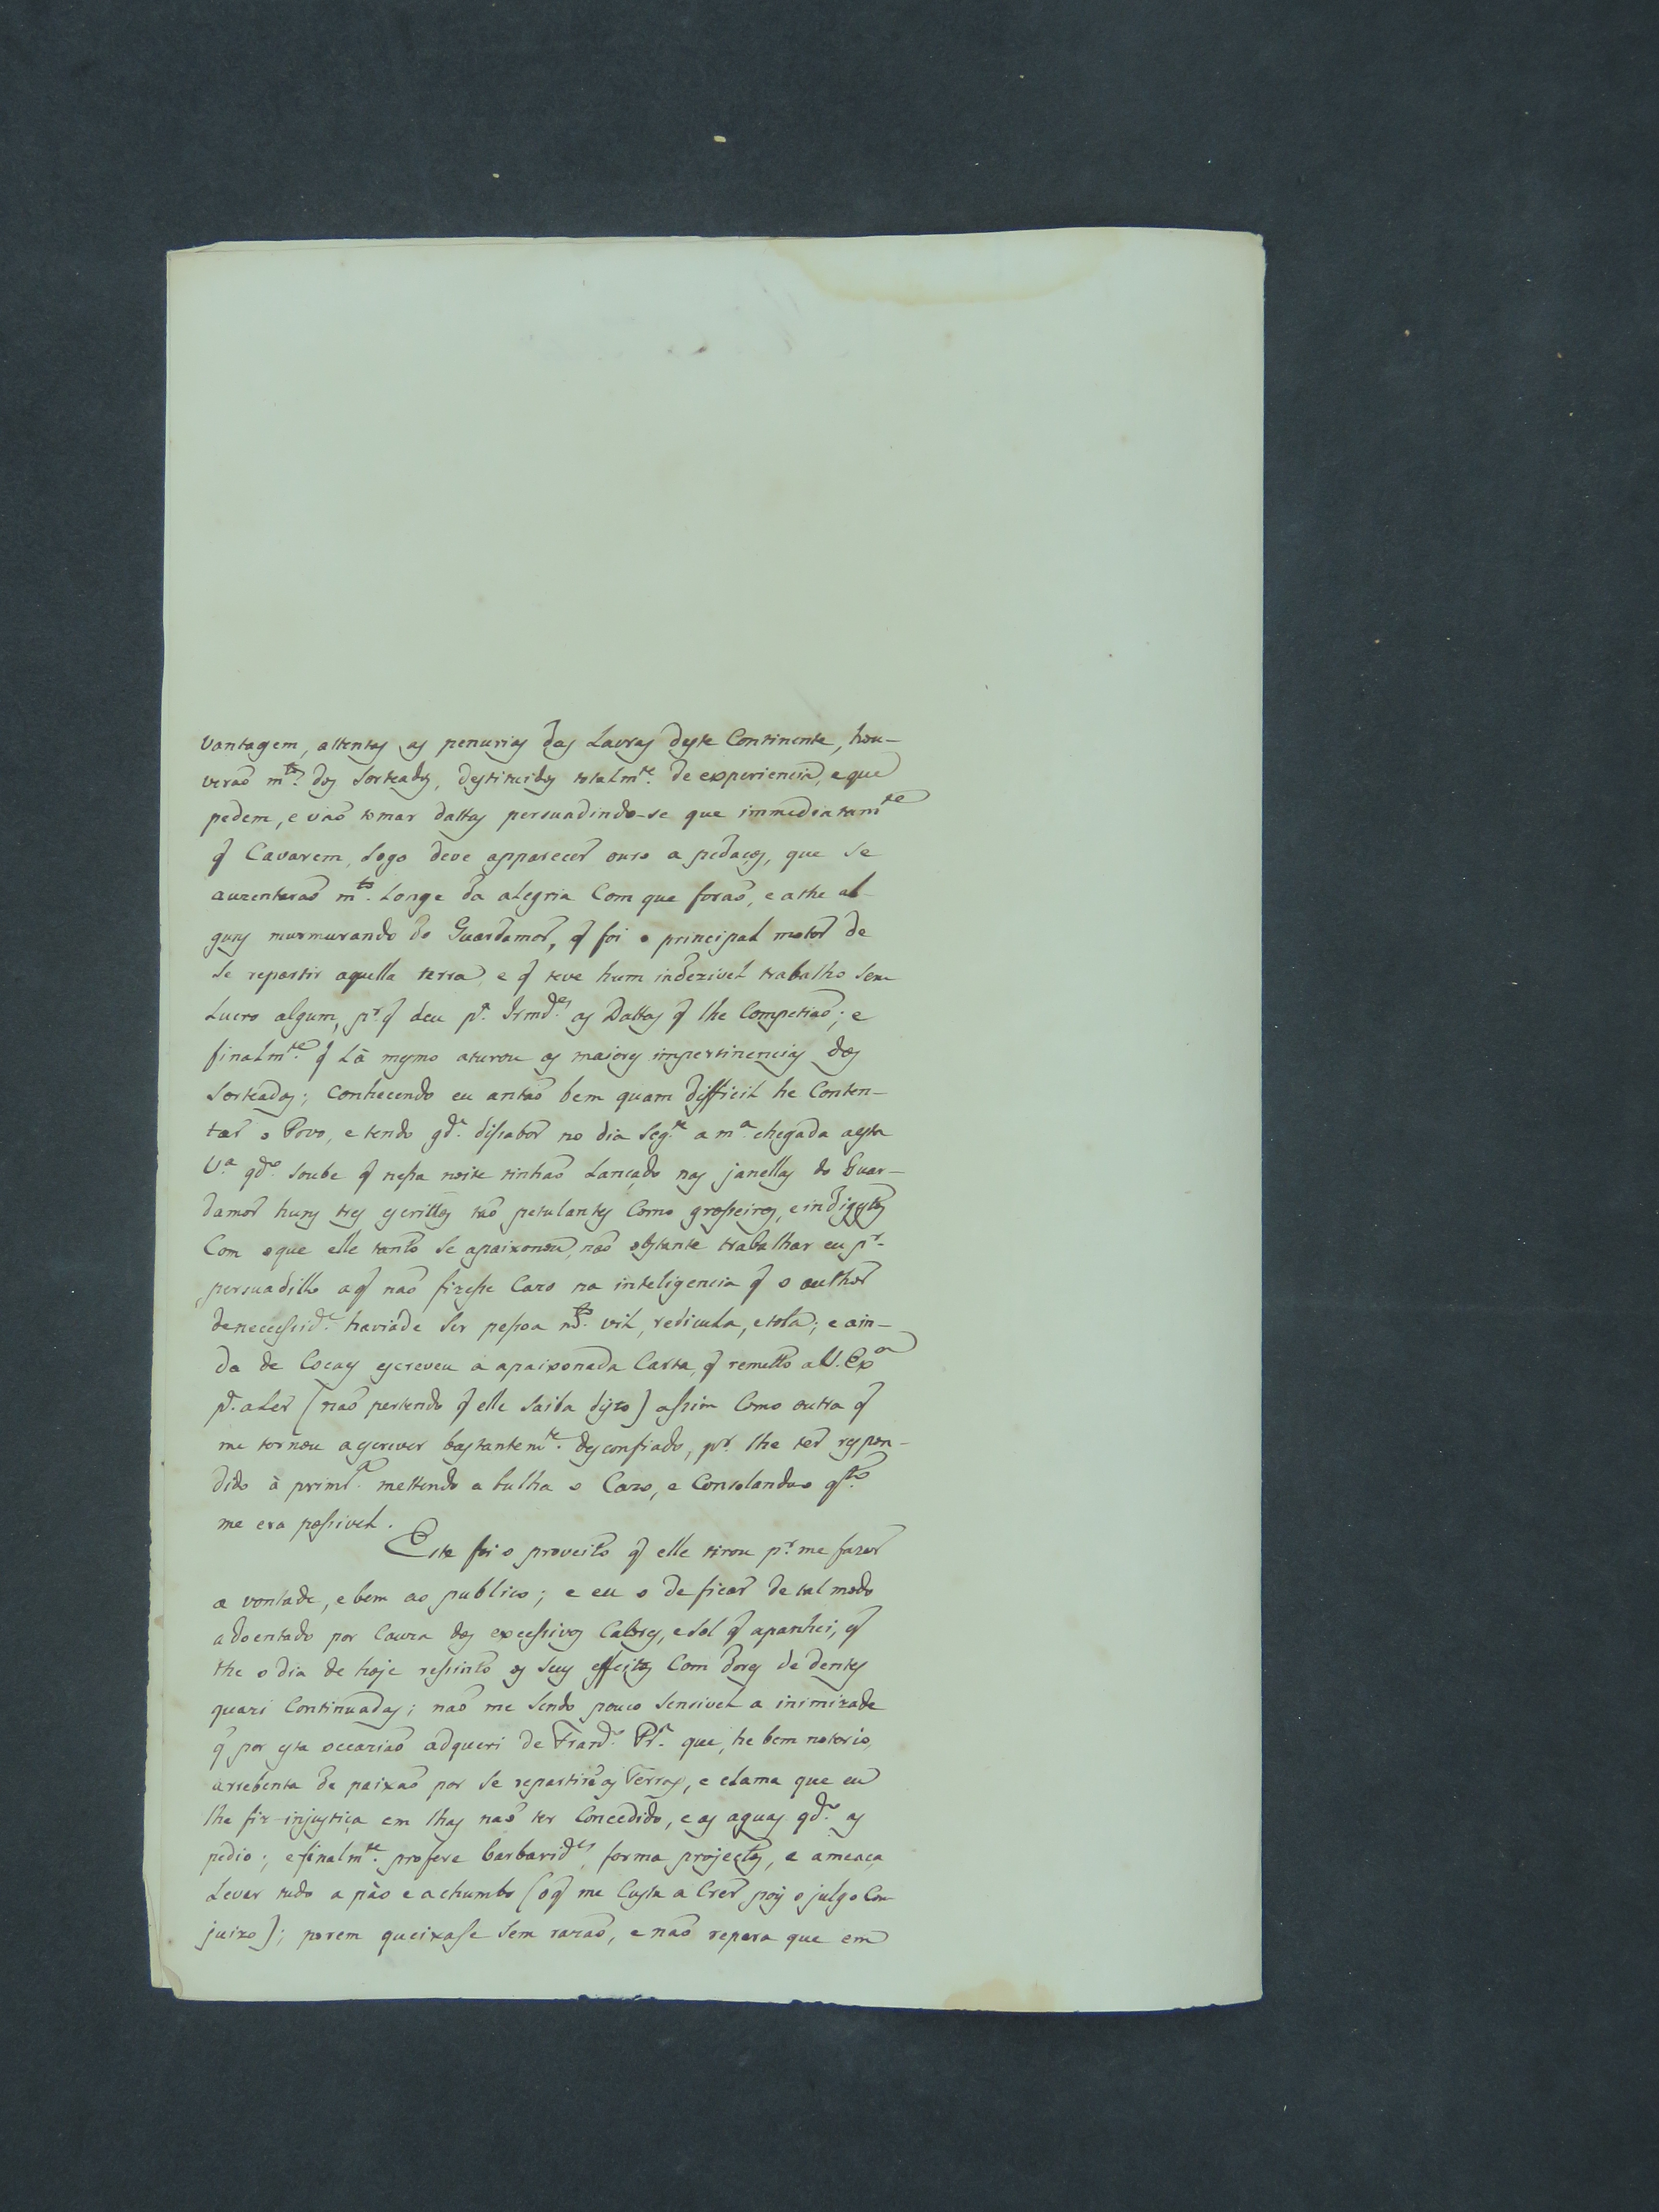 vantagem, attentas as penurias das Lavras deste Continente, hou-
verão m.tos dos sorteados, destituidos totalm.te de experiencia, e que
pedem, e vão tomar dattas persuadindo-se que immediatam.te
q̃ Cavarem, logo deve apparecer ouro a pedaços, que se
auzentarão m.to Longe da alegria Com que forão, e athe al-
guns murmurando do Guardamor, q̃ foi o principal motor de
se repartir aquella terra, e q̃ teve hum indezivel trabalho sem
Lucro algum, p.r q̃ deu p.a Irmd.es as Dattas q̃ lhe Competião; e
finalm.te q̃ Lá mesmo aturou as maiores impertinencias dos
sorteados; Conhecendo eu antão bem quam difficil he Conten-
tar o Povo, e tendo gd.e dissabor no dia seg.te a m.a chegada a esta
V.a qd.o soube q̃ nessa noite tinhão Lançado nas janellas do Guar-
damor huns tres escrittos tão petulantes Como grosseiros, e indigestos
Com o que elle tanto se apaixonou, não obstante trabalhar eu p.r
persuadillo a q̃ não fizesse Cazo na inteligencia q̃ o author
de necessid.e havia de ser pessoa m.to vil, redicula, e tola; e ain-
da de Cocaes escreveu a apaixonada Carta, q̃ remetto a V. Ex.a
p.a a Ler (não pertendo q̃ elle saiba disto) assim Como outra q̃
me tornou a escrever bastantem.te desconfiado, p.r lhe ter respon-
dido à prim.a mettendo a bulha o Cazo, e Consolando-o q.to
me era possivel.
Este foi o proveito q̃ elle tirou p.r me fazer
a vontade, e bem ao publico; e eu o de ficar de tal modo
adoentado por Cauza dos excessivos Calores, e sol q̃ apanhei, q̃
the o dia de hoje ressinto os seus effeitos Com dores de dentes
quazi Continuadas; não me sendo pouco sensivel a inimizade
q̃ por esta occazião adqueri de Fran.do Pr.a que, he bem notorio,
arrebenta de paixão por se repartirẽ as Terras, e clama que eu
lhe fiz injustiça em lhas não ter Concedido, e as aguas qd.o as
pedio; e finalm.te profere barbarid.es, forma projectos, e ameaça
Levar tudo a páo e a chumbo (o q̃ me Custa a Crer pois o julgo Com
juizo); porem queixasse sem razão, e não repara que em